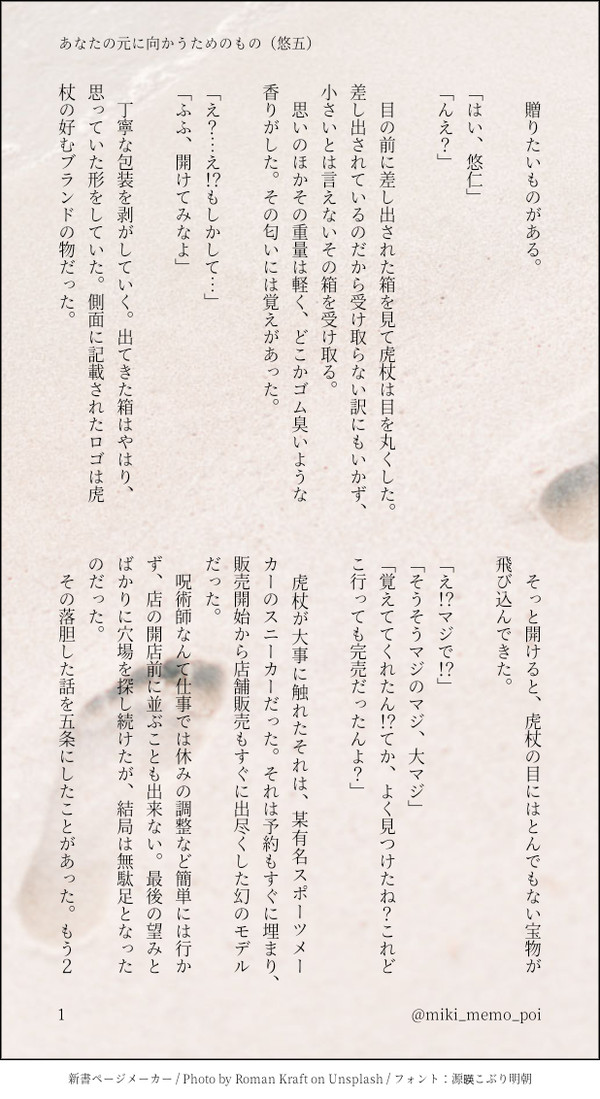 あなたの元に向かうためのもの（悠五）
贈りたいものがある。
「はい、悠仁」
「んえ？」
目の前に差し出された箱を見て虎杖は目を丸くした。
差し出されているのだから受け取らない訳にもいかず、
小さいとは言えないその箱を受け取る。
思いのほかその重量は軽く、どこかゴム臭いような
香りがした。その匂いには覚えがあった。
「え？…え⁉もしかして…」
「ふふ、開けてみなよ」
丁寧な包装を剥がしていく。出てきた箱はやはり、
思っていた形をしていた。側面に記載されたロゴは虎
杖の好むブランドの物だった。
そっと開けると、虎杖の目にはとんでもない宝物が
飛び込んできた。
「え⁉マジで⁉」
「そうそうマジのマジ、大マジ」
「覚えててくれたん⁉てか、よく見つけたね？これど
こ行っても完売だったんよ？」
虎杖が大事に触れたそれは、某有名スポーツメー
カーのスニーカーだった。それは予約もすぐに埋まり、
販売開始から店舗販売もすぐに出尽くした幻のモデル
だった。
呪術師なんて仕事では休みの調整など簡単には行か
ず、店の開店前に並ぶことも出来ない。最後の望みと
ばかりに穴場を探し続けたが、結局は無駄足となった
のだった。
その落胆した話を五条にしたことがあった。もう２
1
@miki_memo_poi
新書ページメーカー / Photo by Roman Kraft on Unsplash / フォント：源暎こぶり明朝